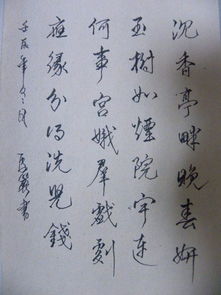 沉香亭畔晚春妍
玉樹如煙院宇連
何事宮娥羣戲劇
應緣分得洗兒錢
壬辰年冬月 書